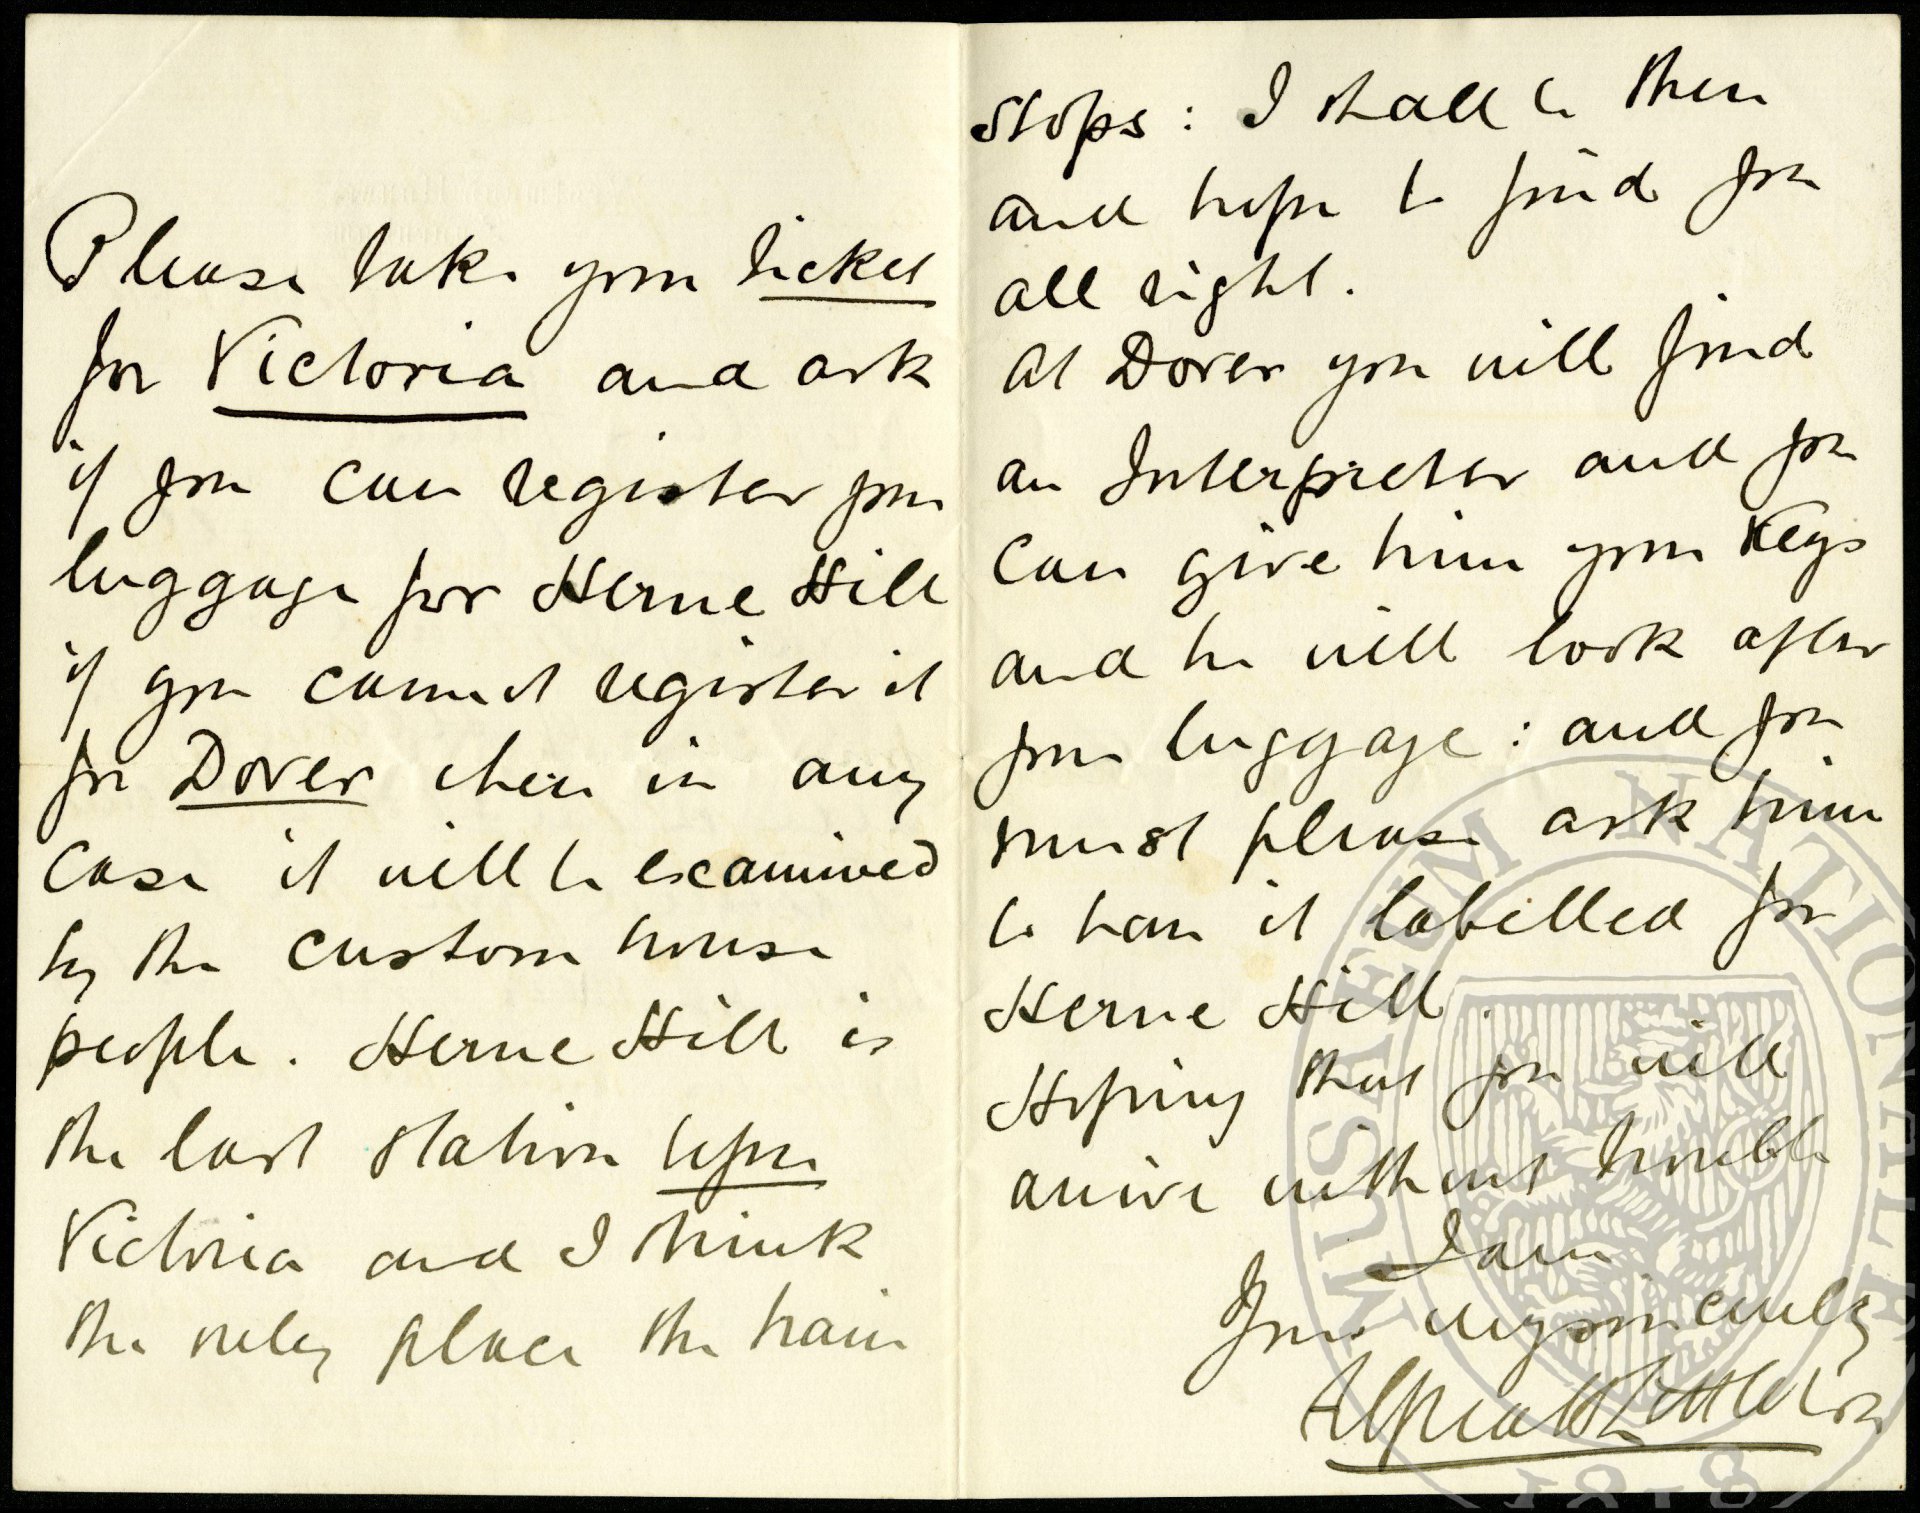 Please take your ticket
for Victoria and ask
if you can register your
luggage for Herne Hill
if you cannot register it
for Dover where in any
case it will be examined
by the custom house
people. Herne Hill is
the last station before
Victoria and I think
the only place the train
stops: I shall be there
and hope to find you
all right.
At Dover you will find
an Interpreter and you
can give him your Keys
and he will look after
your luggage: and you
must please ask him
to have it labelled for
Herne Hill.
Hoping that you will
arrive without trouble
I am
Yours very sincerely
Alfred Littleton
MUSAEUM NATIONALE
1818